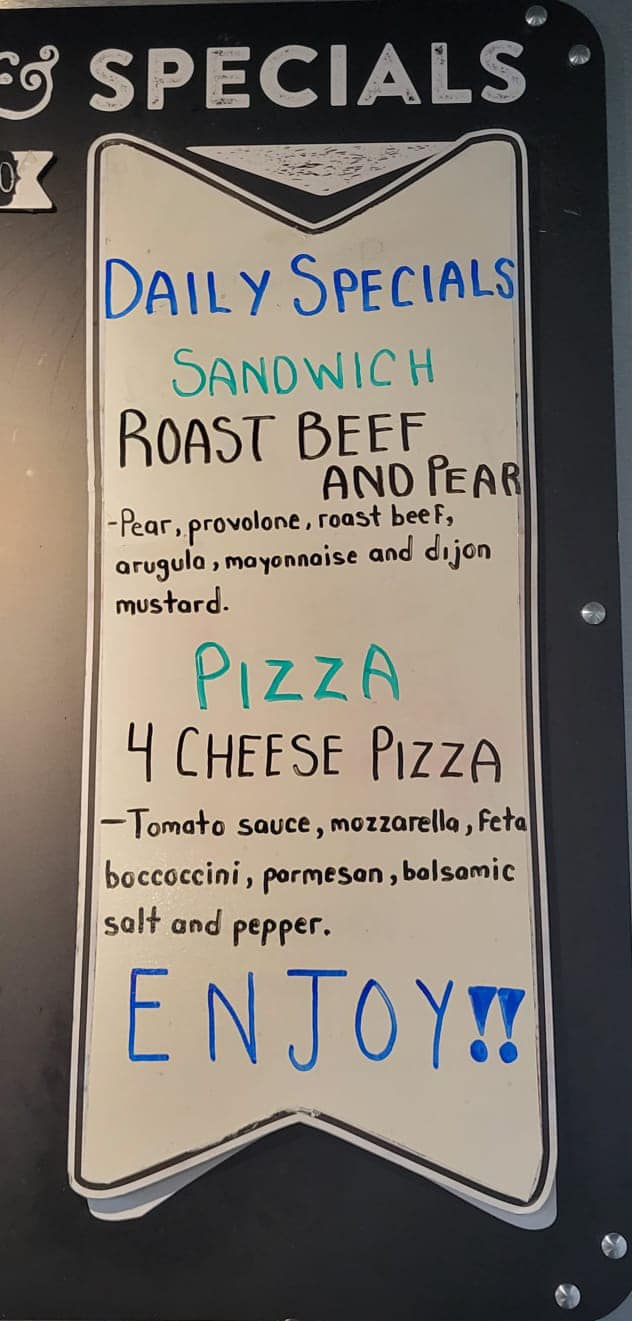 & SPECIALS
DAILY SPECIALS
SANDWICH
ROAST BEEF
AND PEAR
-Pear, provolone, roast beef,
arugula, mayonnaise and dijon
mustard.
PIZZA
4 CHEESE PIZZA
-Tomato sauce, mozzarella, feta
boccoccini, parmesan, balsamic
salt and pepper.
ENJOY!!